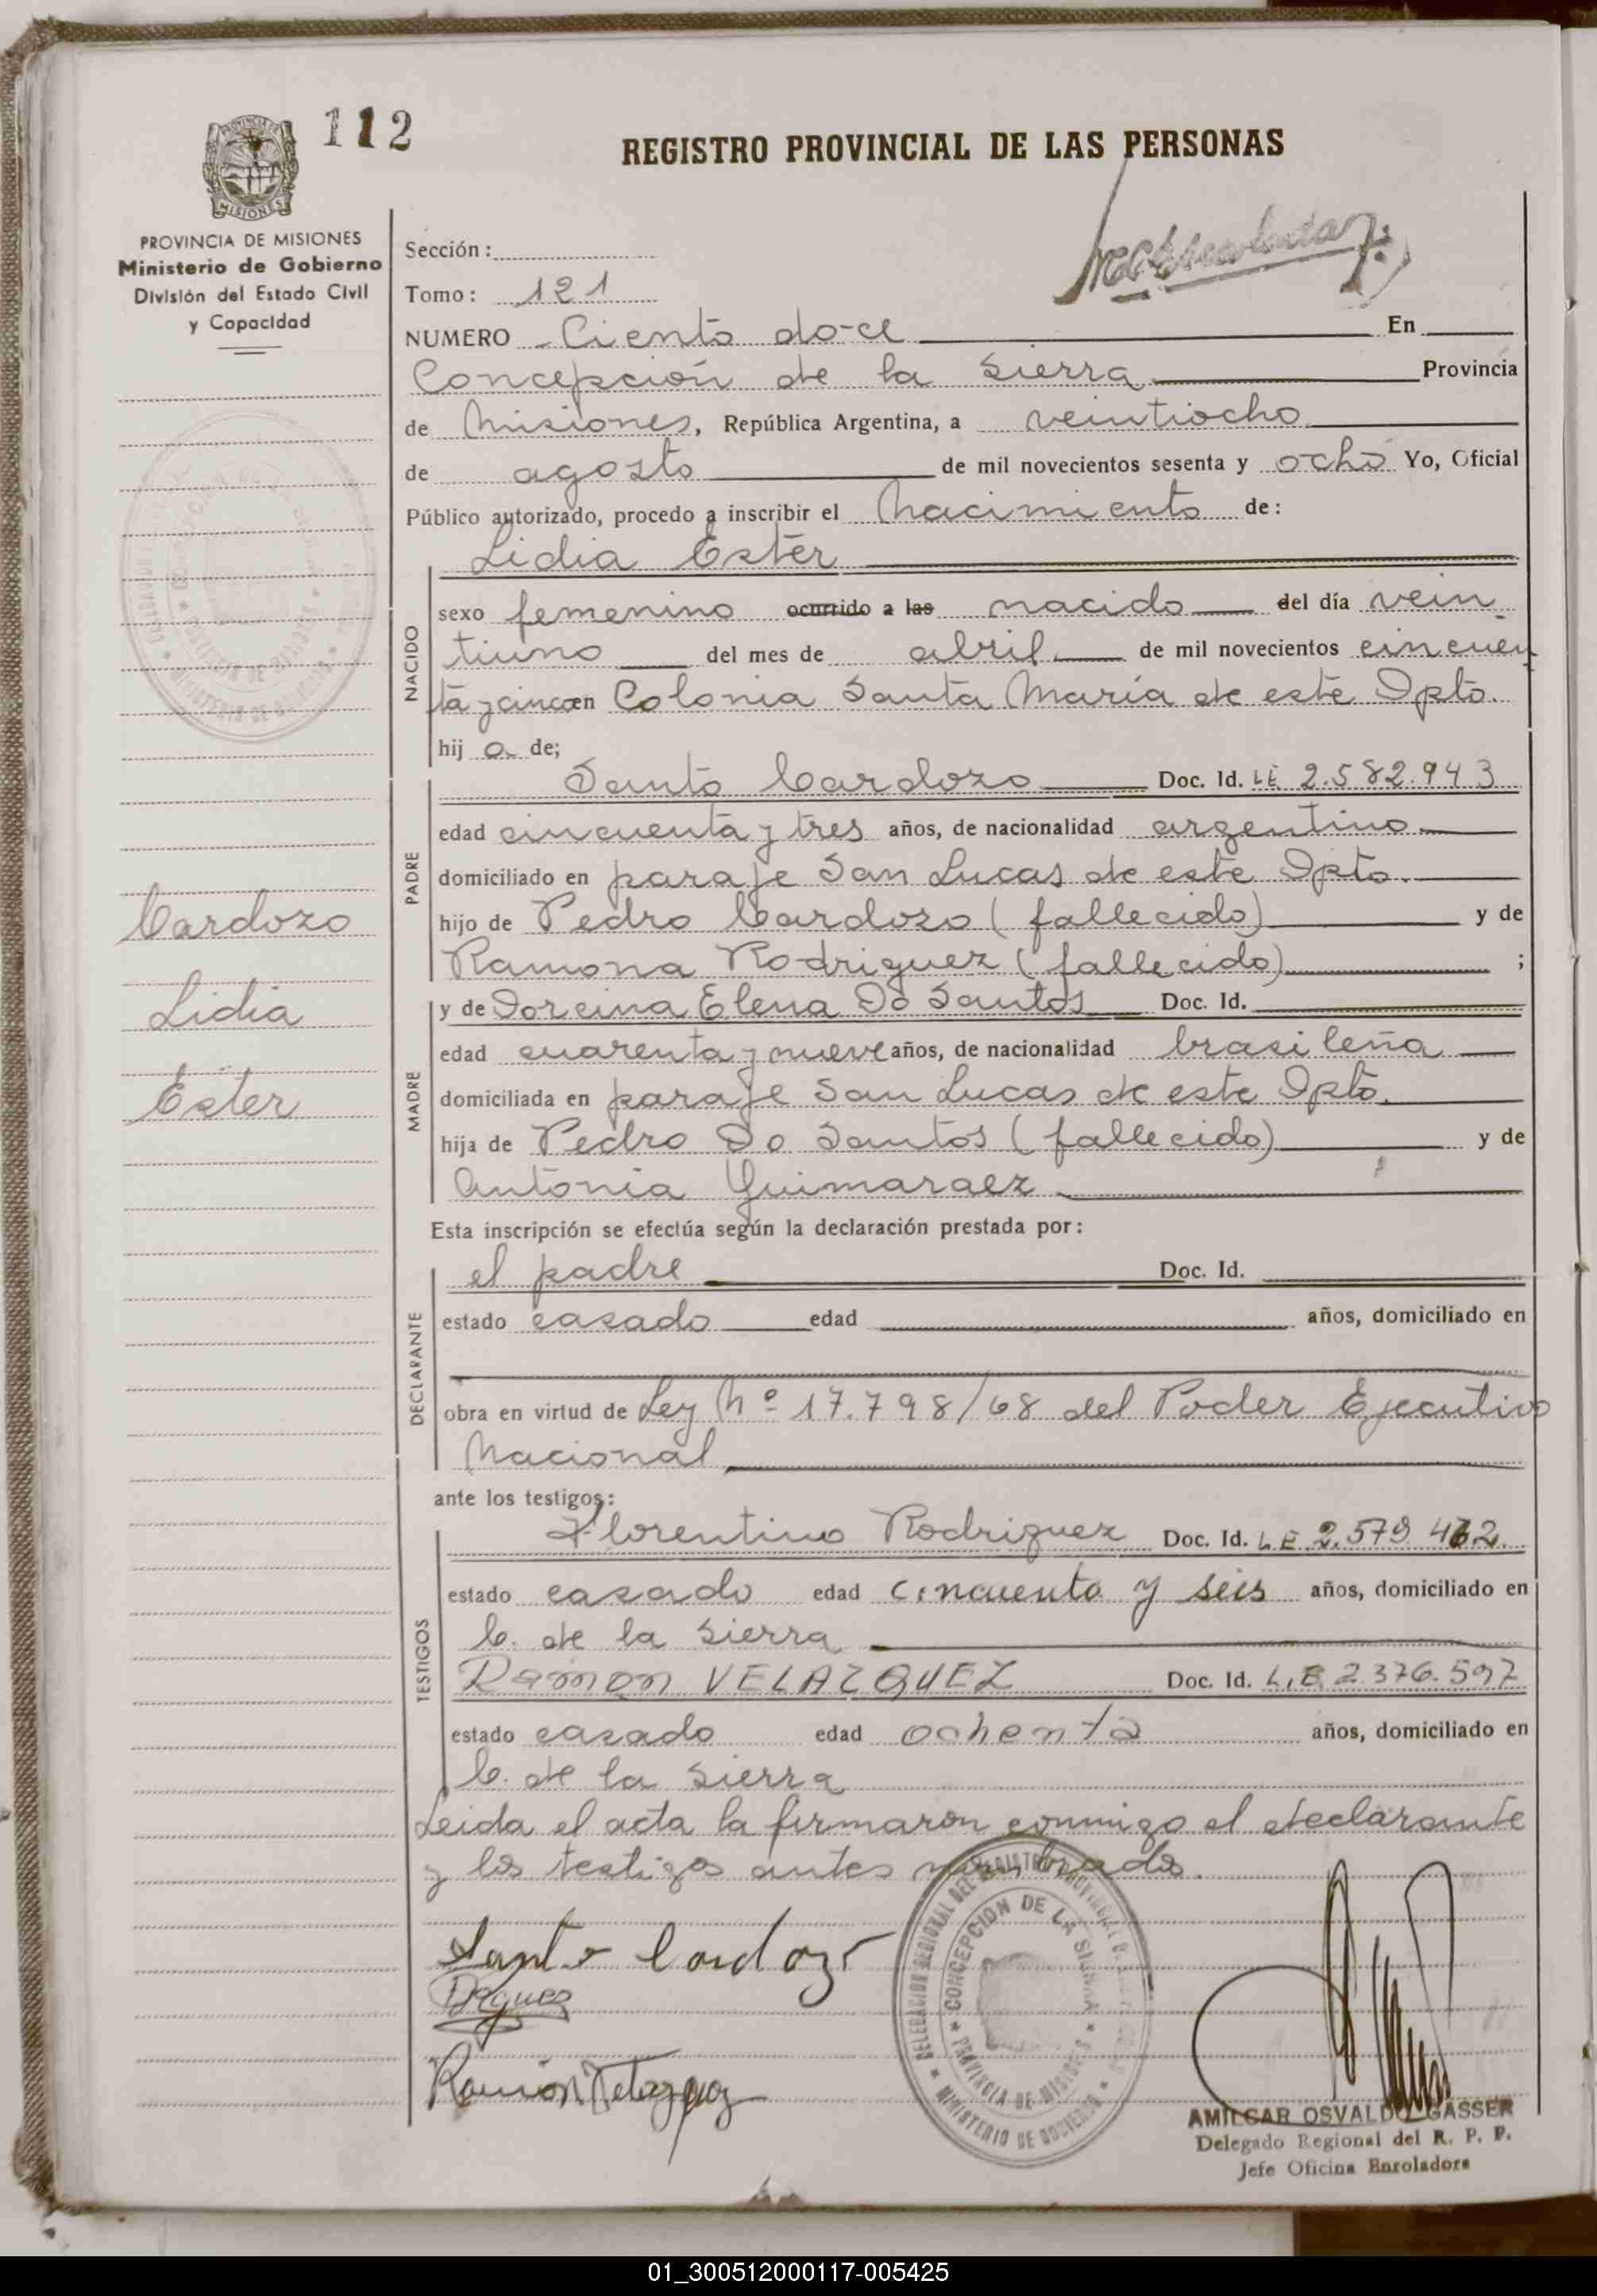 112
REGISTRO PROVINCIAL DE LAS PERSONAS
PROVINCIA DE MISIONES
Ministerio de Gobierno
División del Estado Civil
y Capacidad
Sección:
Tomo: 121
NUMERO Ciento doce En
Concepción de la Sierra Provincia
de Misiones, República Argentina, a veintiocho
de agosto de mil novecientos sesenta y ocho Yo, Oficial
Público autorizado, procedo a inscribir el Nacimiento de:
Lidia Ester
NACIDO
sexo femenino ocurrido a las nacido del día vein
tiuno del mes de abril de mil novecientos cincuen
ta y cinco en Colonia Santa María de este Dpto.
hij a de;
PADRE
Santo Cardozo Doc. Id. LE 2.582.943
edad cincuenta y tres años, de nacionalidad argentino
domiciliado en paraje San Lucas de este Dpto.
hijo de Pedro Cardozo (fallecido) y de
Ramona Rodriguez (fallecido) ;
Cardozo
Lidia
Ester
MADRE
y de Dorcina Elena Do Santos Doc. Id.
edad cuarenta y nueve años, de nacionalidad brasileña
domiciliada en paraje San Lucas de este Dpto.
hija de Pedro Do Santos (fallecido) y de
Antonia Guimaraez
Esta inscripción se efectúa según la declaración prestada por:
DECLARANTE
el padre Doc. Id.
estado casado edad años, domiciliado en
obra en virtud de Ley Nº 17.798/68 del Poder Ejecutivo
Nacional
ante los testigos:
TESTIGOS
Florentino Rodriguez Doc. Id. L E 2.579.462
estado casado edad cincuenta y seis años, domiciliado en
C. de la Sierra
RAMON VELAZQUEZ Doc. Id. L.E 2.376.597
estado casado edad ochenta años, domiciliado en
C. de la Sierra
Leida el acta la firmaron conmigo el declarante
y los testigos antes nombrados.
Santo Cardozo
Ramón Velazquez
DELEGACION REGIONAL DEL REGISTRO PROVINCIAL
CONCEPCION DE LA SIERRA
PROVINCIA DE MISIONES
MINISTERIO DE GOBIERNO
AMILCAR OSVALDO GASSER
Delegado Regional del R. P. P.
Jefe Oficina Enroladora
01_300512000117-005425